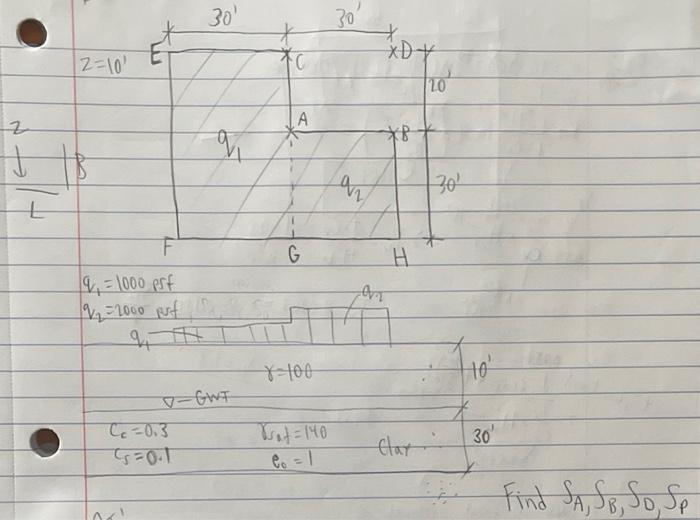 30' 30'
E C D
Z=10' 20'
A B
Z q₁ q₂ 30'
B
L
F G H
q₁=1000 psf
q₂=2000 psf q₂
q₁
γ=100 10'
▽-GWT
Cc=0.3 γsat=140 Clay 30'
Cs=0.1 e₀=1
Find SA, SB, SD, Sp